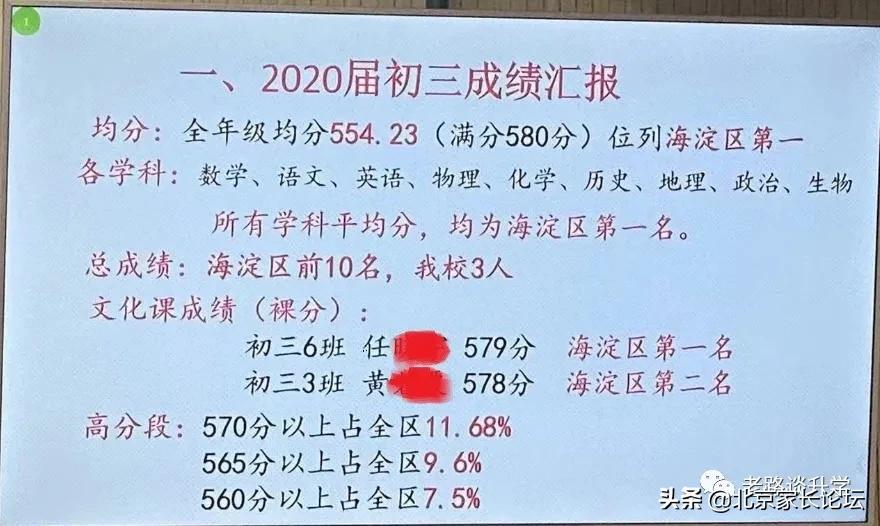 1
一、2020届初三成绩汇报
均分：全年级均分554.23（满分580分）位列海淀区第一
各学科：数学、语文、英语、物理、化学、历史、地理、政治、生物
所有学科平均分，均为海淀区第一名。
总成绩：海淀区前10名，我校3人
文化课成绩（裸分）：
初三6班 任 579分 海淀区第一名
初三3班 黄 578分 海淀区第二名
高分段：570分以上占全区11.68%
565分以上占全区9.6%
560分以上占全区7.5%
老路谈升学
头条@北京家长论坛